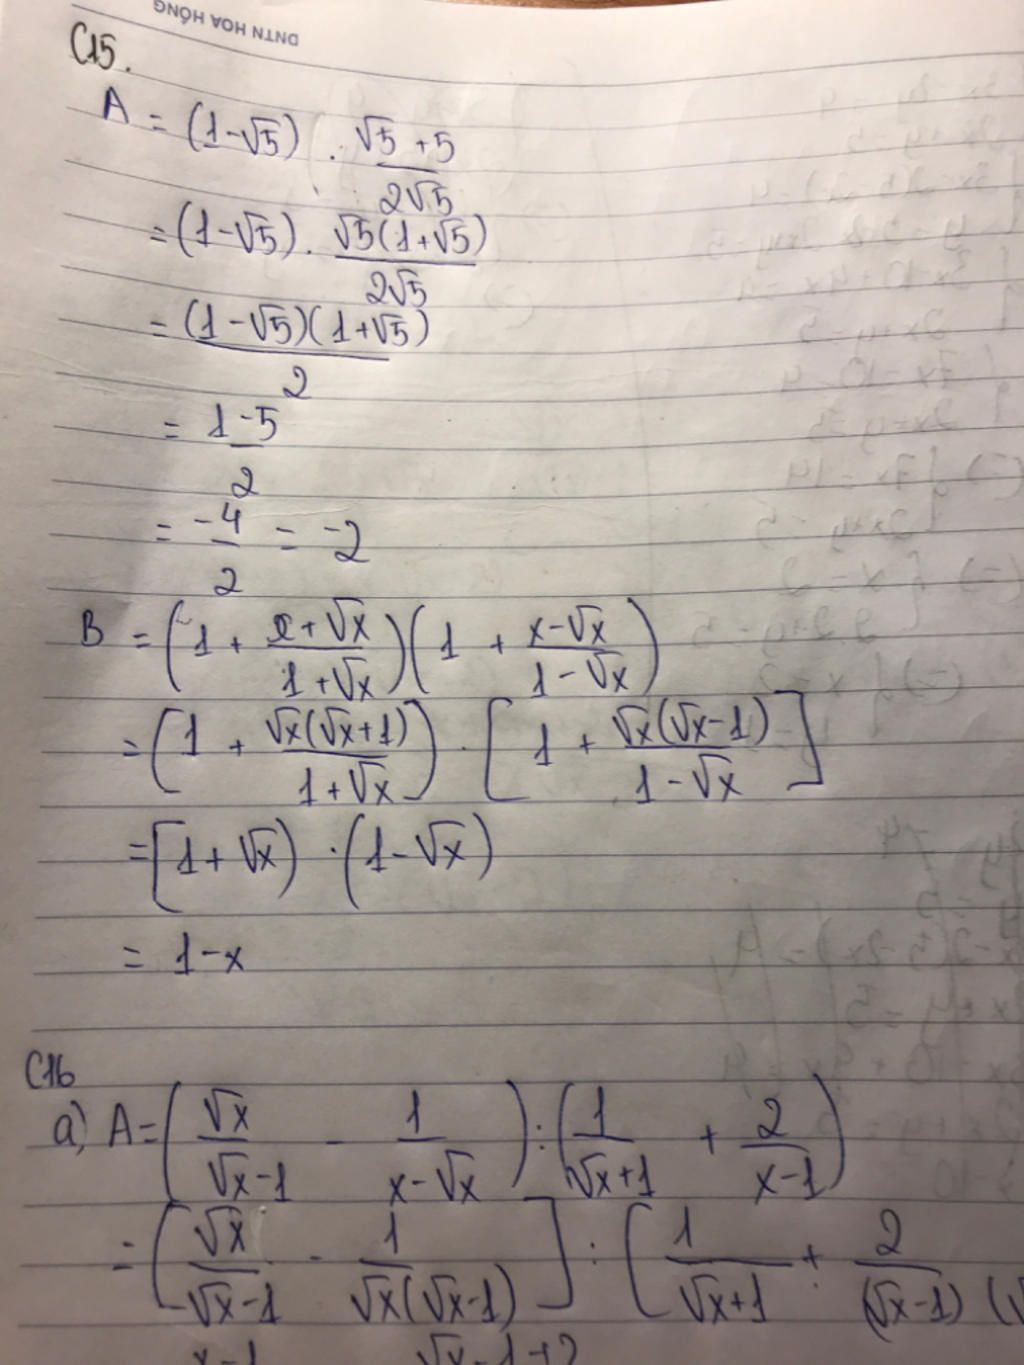 DNTN HOA HỒNG
C15.
A = (1-√5) . (√5 + 5)/(2√5)
= (1-√5) . (√5(1+√5))/(2√5)
= ((1-√5)(1+√5))/2
= (1-5)/2
= -4/2 = -2
B = (1 + (x+√x)/(1+√x)) (1 + (x-√x)/(1-√x))
= (1 + (√x(√x+1))/(1+√x)) . [1 + (√x(√x-1))/(1-√x)]
= [1+√x) . (1-√x)
= 1-x
C16
a) A = (√x/(√x-1) - 1/(x-√x)) : (1/(√x+1) + 2/(x-1))
= [√x/(√x-1) - 1/(√x(√x-1))] : [1/(√x+1) + 2/((√x-1)(√
x-1 √x-1+2